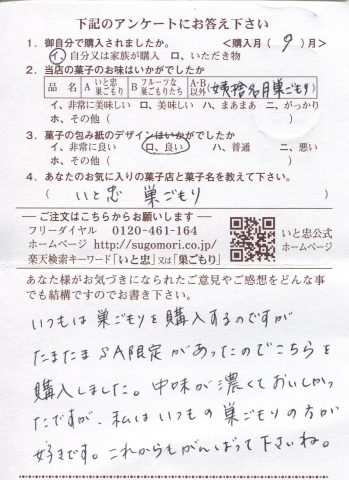 下記のアンケートにお答え下さい
1. 御自分で購入されましたか。 <購入月( 9 )月>
イ、自分又は家族が購入 ロ、いただき物
2. 当店の菓子のお味はいかがでしたか
品 名 A いと忠巣ごもり B フルーツな巣ごもりたち A・B以外 (姨捨名月巣ごもり)
イ、非常に美味しい ロ、美味しい ハ、まあまあ ニ、がっかり
ホ、その他( )
3. 菓子の包み紙のデザインはいかがでしたか
イ、非常に良い ロ、良い ハ、普通 ニ、悪い
ホ、その他( )
4. あなたのお気に入りの菓子店と菓子名を教えて下さい。
( いと忠 巣ごもり )
ご注文はこちらからお願いします
フリーダイヤル 0120-461-164
ホームページ http://sugomori.co.jp/
楽天検索キーワード「いと忠」又は「巣ごもり」
いと忠公式
ホームページ
あなた様がお気づきになられたご意見やご感想をどんな事
でも結構ですのでお書き下さい。
いつもは巣ごもりを購入するのですが
たまたまSA限定があったのでこちらを
購入しました。中味が濃くておいしかっ
たですが、私はいつもの巣ごもりの方が
好きです。これからもがんばって下さいね。